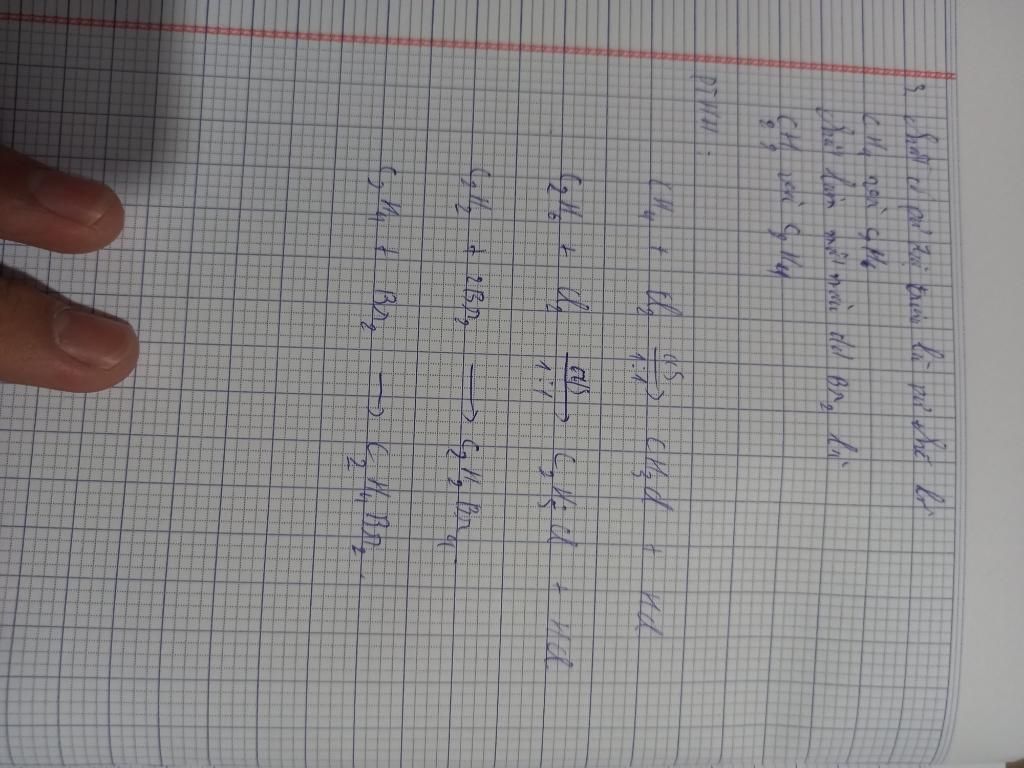 3. Chất có
CH4 và C2H6
Chất làm mất màu dd Br2 là
C2H2 và C2H4
PTHH:
CH4 + Cl2 as→ 1:1 CH3Cl + HCl
C2H6 + Cl2 as→ 1:1 C2H5Cl + HCl
C2H2 + 2Br2 → C2H2Br4
C2H4 + Br2 → C2H4Br2.